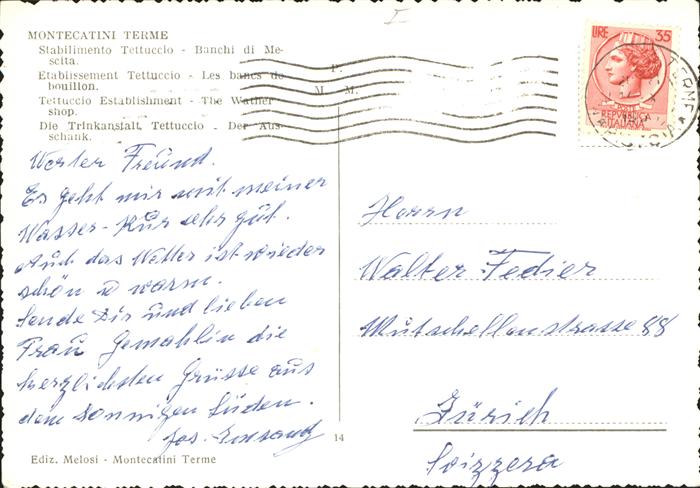 MONTECATINI TERME
Stabilimento Tettuccio - Banchi di Me-
scita.
Etablissement Tettuccio - Les bancs de
bouillon.
Tettuccio Establishment - The Wather
shop.
Die Trinkanstalt Tettuccio - Der Aus-
schank.
P.
M. M.
LIRE 35
POSTE
REPVBBLICA
ITALIANA
TERME
Werter Freund.
Es geht mir mit meiner
Wasser-Kur sehr gut.
Auch das Wetter ist wieder
schön u warm.
Sende Dir und lieben
Frau Gemahlin die
herzlichsten Grüsse aus
dem Sonnigen Süden.
Jos.
Herrn
Walter Fedier
Mutschellenstrasse 88
Zürich
Svizzera
14
Ediz. Melosi - Montecatini Terme